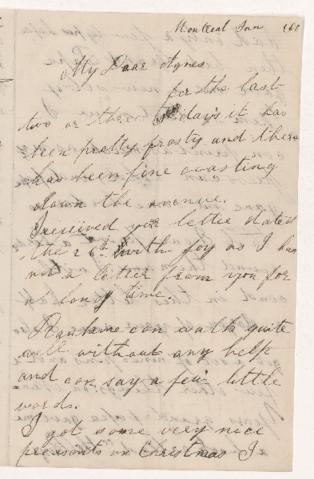 Montreal Jan
My Dear Agnes
for the last
two or three days it has
been pretty frosty and there
has been fine coasting
down the avenue.
I received your letter dated
the 26th with joy as I had
not a letter from you for
a long time
can walk quite
well without any help
and can say a few little
words.
I got some very nice
presents on Christmas I